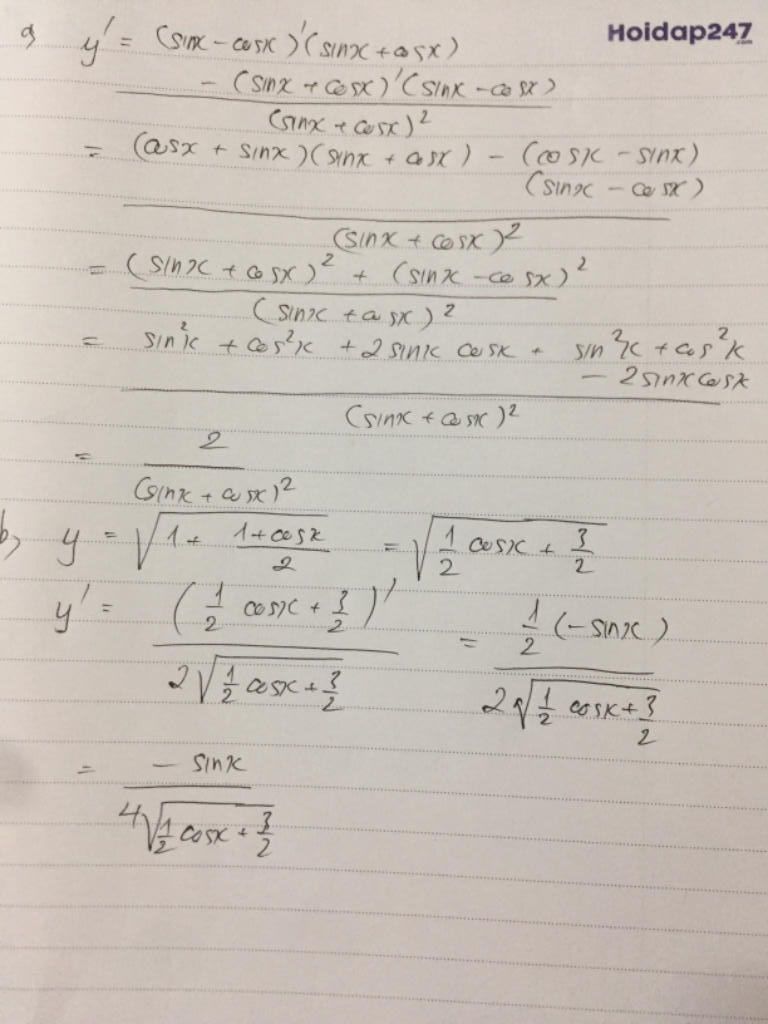 Hoidap247.com
a) y' = (sinx - cosx)'(sinx + cosx)
- (sinx + cosx)'(sinx - cosx)
(sinx + cosx)²
= (cosx + sinx)(sinx + cosx) - (cosx - sinx)
(sinx - cosx)
(sinx + cosx)²
= (sinx + cosx)² + (sinx - cosx)²
(sinx + cosx)²
= sin²x + cos²x + 2sinx cosx + sin²x + cos²x
- 2sinxcosx
(sinx + cosx)²
= 2
(sinx + cosx)²
b, y = √(1 + (1+cosx)/2) = √(1/2 cosx + 3/2)
y' = (1/2 cosx + 3/2)' / 2√(1/2 cosx + 3/2) = 1/2 (-sinx) / 2√(1/2 cosx + 3/2)
= - sinx / 4√(1/2 cosx + 3/2)